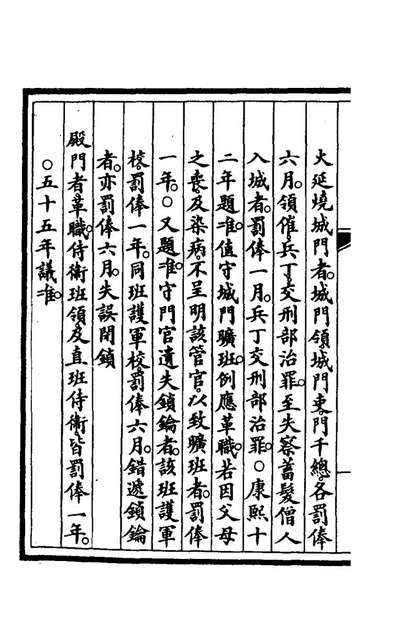 火延燒城門者。城門領城門吏門千總。各罰俸
六月。領催兵丁。交刑部治罪。至失察蓄髮僧人
入城者。罰俸一月。兵丁交刑部治罪。○康熙十
二年題准。值守城門曠班。例應革職。若因父母
之喪。及染病。不呈明該管官。以致曠班者。罰俸
一年。○又題准。守門官遺失鎖鑰者。該班護軍
校。罰俸一年。同班護軍校。罰俸六月。錯遞鎖鑰
者。亦罰俸六月。失誤閉鎖
殿門者。革職。侍衛班領。及直班侍衛。皆罰俸一年。
○五十五年議准。